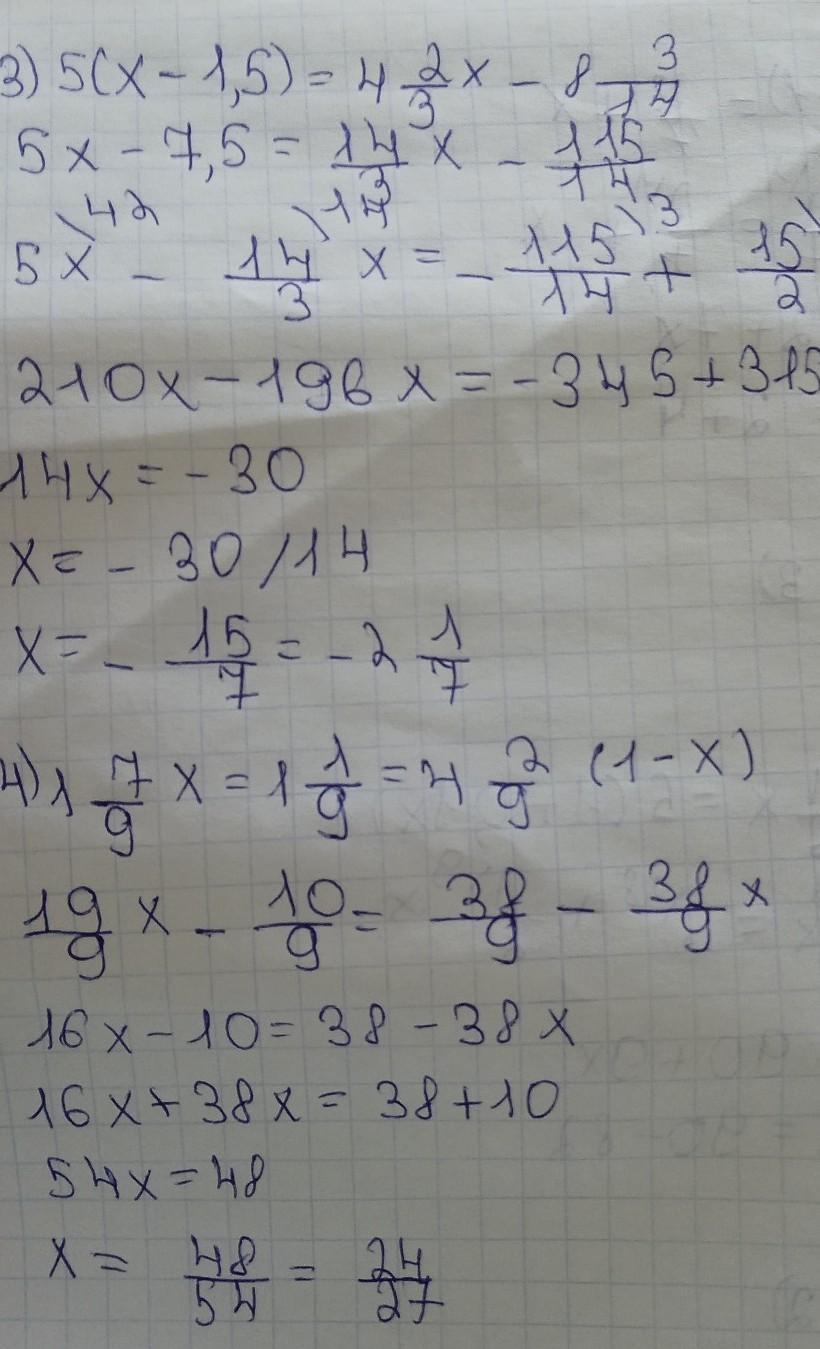 3) 5(x - 1,5) = 4 2/3 x - 8 3/14
5x - 7,5 = 14/3 x - 115/14
5x\42 - 14/3\14 x = - 115/14\3 + 15/2
210x - 196x = -345 + 315
14x = -30
x = - 30/14
x = - 15/7 = -2 1/7
4) 1 7/9 x = 1 1/9 = 4 2/9 (1 - x)
19/9 x - 10/9 = 38/9 - 38/9 x
16x - 10 = 38 - 38x
16x + 38x = 38 + 10
54x = 48
x = 48/54 = 24/27